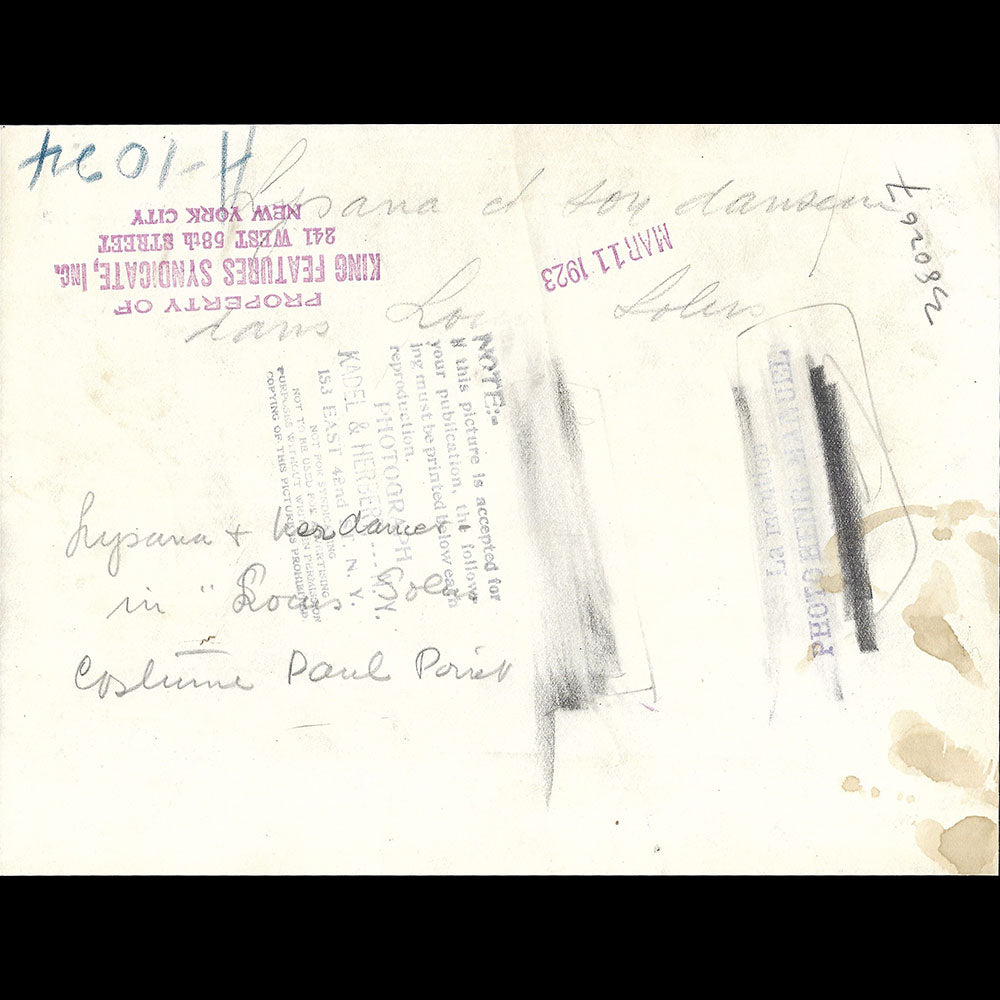 H-1034
Lysana et son danseur
dans Locus Solus
PROPERTY OF
KING FEATURES SYNDICATE, INC.
241 WEST 58th STREET
NEW YORK CITY
MAR 11 1923
NOTE:-
If this picture is accepted for
your publication, the follow-
ing must be printed below each
reproduction.
PHOTOGRAPH
KADEL & HERBERT N.Y.
153 EAST 42nd ST. N. Y.
NOT FOR SYNDICATING
NOT TO BE USED FOR ADVERTISING
PURPOSES WITHOUT WRITTEN PERMISSION
COPYING OF THIS PICTURE IS PROHIBITED
La mention
PHOTO HENRI MANUEL
Lysana + her dancer
in "Locus Solus
Costume Paul Poiret